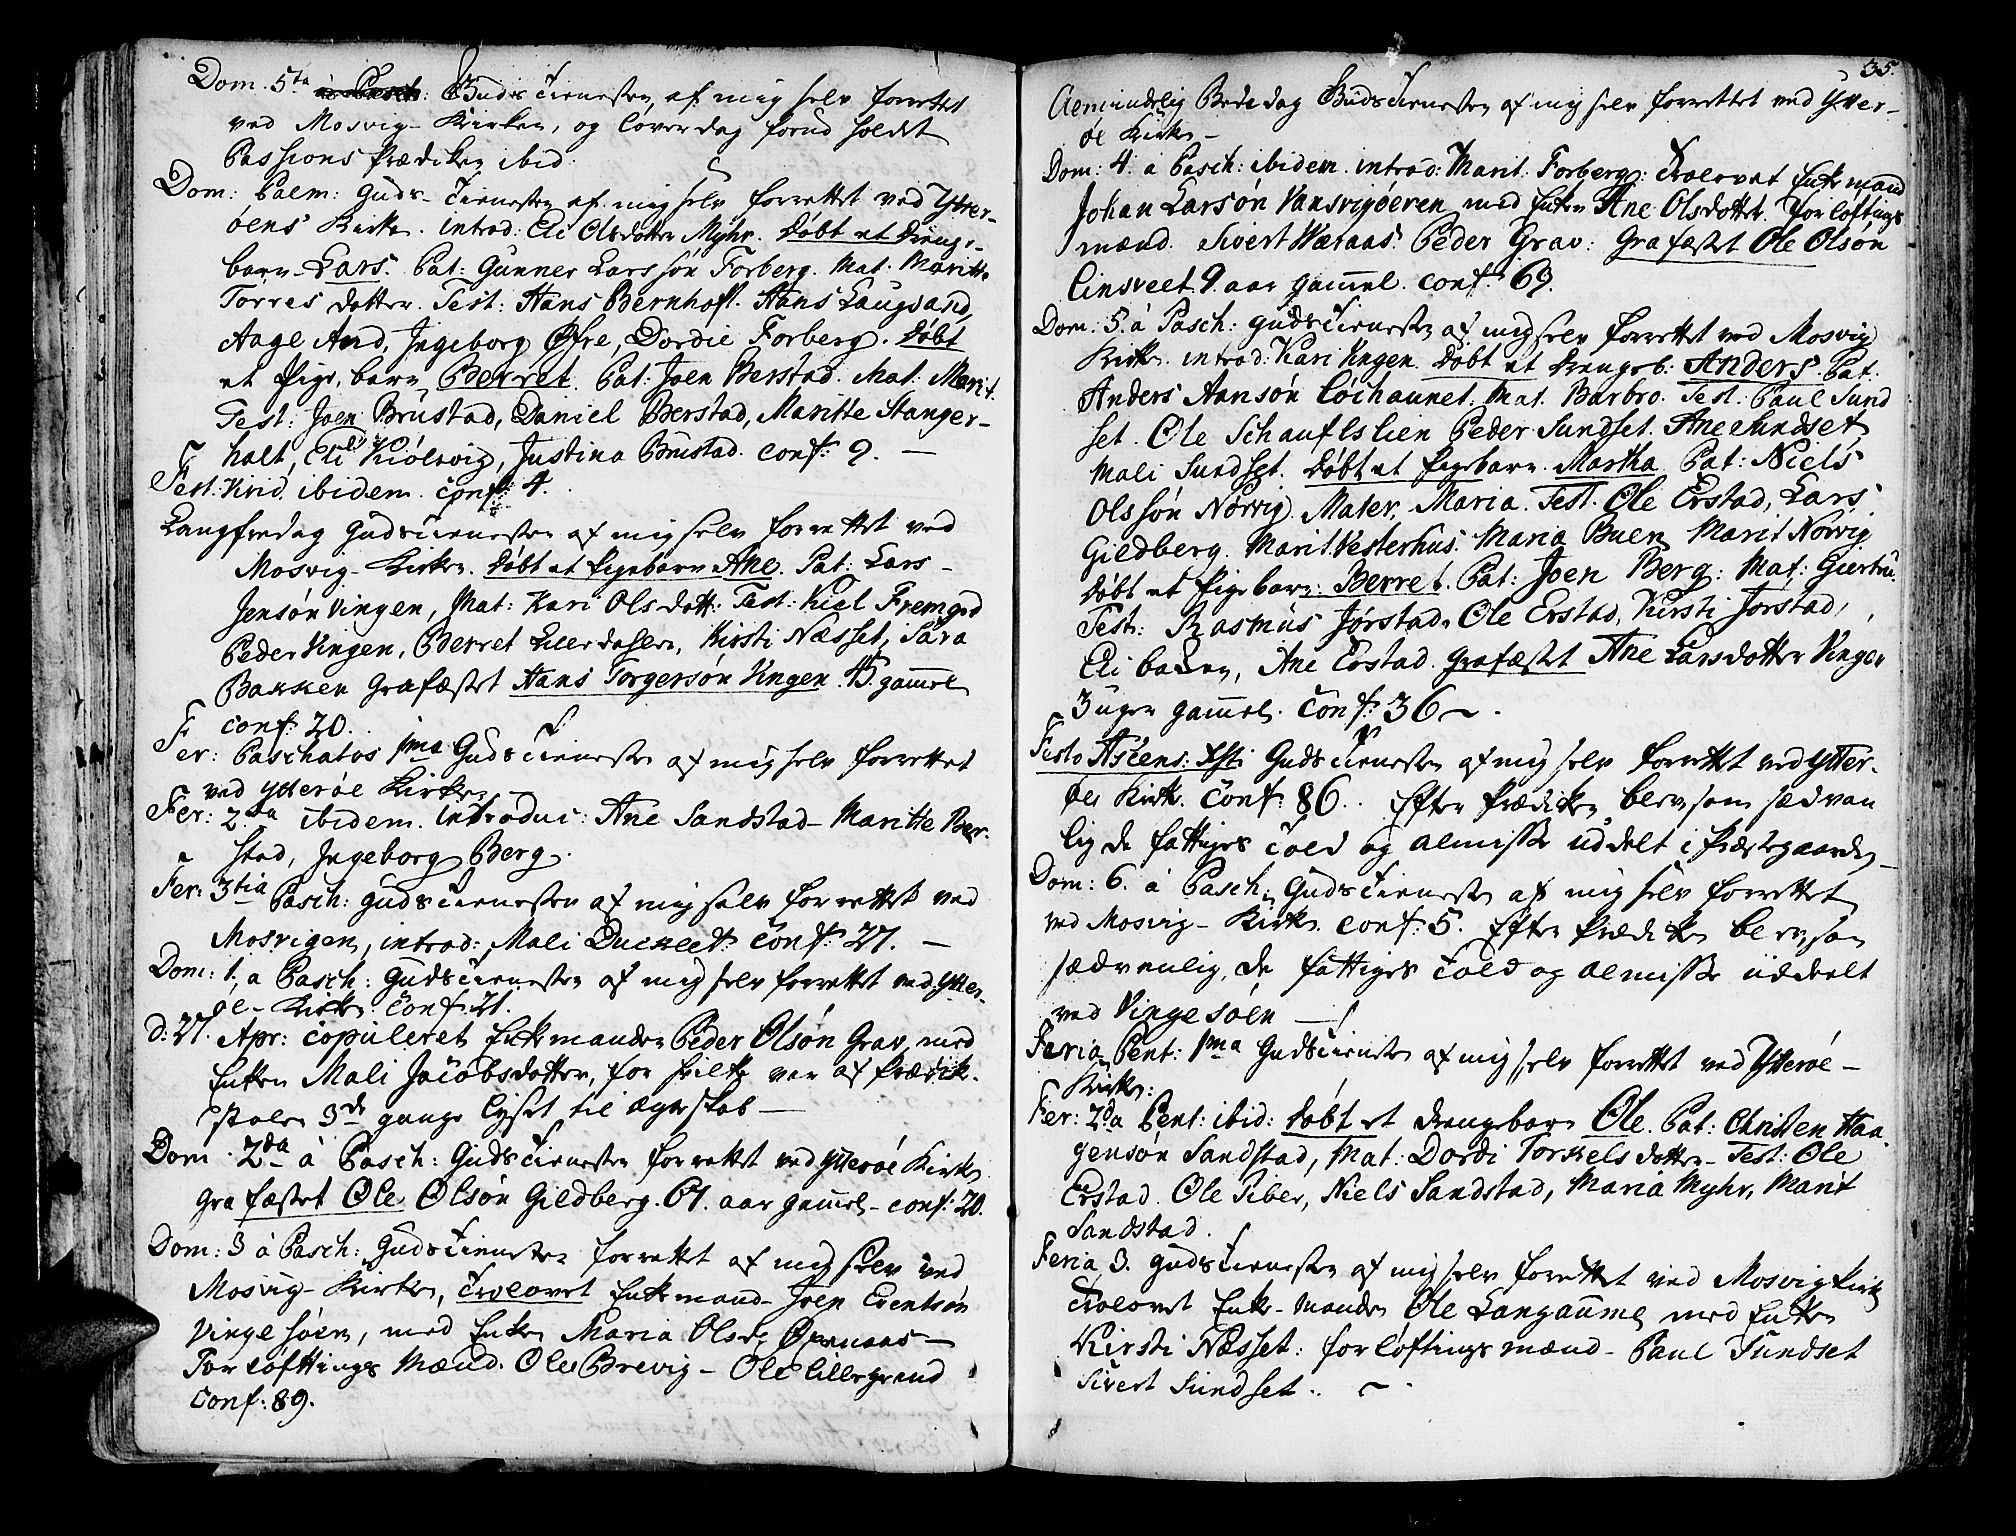 Dom. 5ta Guds Tienesten af mig selv forrettet
ved Mosvig-Kirken, og løverdag forud holdet
Passions Prædiken ibid:
Dom: Palm: Guds-Tienesten af mig selv forrettet ved Ytter-
øens Kirke. introd: Eli Olsdotter Myhr. Døbt et drenge-
barn Lars. Pat: Gunner Larssøn Forberg. Mat: Maritte
Torresdotter. Test: Hans Bernhoft. Hans Laugsand,
Aage And, Jngeborg Øfre, Dordie Forberg. Døbt
et Pige-barn Berret. Pat: Joen Berstad. Mat: Marit.
Test: Joen Brustad, Daniel Berstad, Maritte Stanger-
halt, Eli Kiølsvig, Justina Brustad. conf: 9. —
Fest: Virid. ibidem. conf: 4.
Langfredag Gudstienesten af mig selv forrettet ved
Mosvig-Kirken. Døbt et Pigebarn Ane. Pat: Lars
Jensøn Vingen, Mat: Kari Olsdott: Test: Kiel Fremgrd
Peder Vingen, Berret Lillerdahlen, Kirsti Næsset, Sara
Bakken Grafæstet Hans Torgersøn Vingen. 15. gamel
conf: 20.
Fer: Paschatos 1ma Guds Tienesten af mig selv forrettet
ved Ytterøe Kirke
Fer: 2da ibidem. introduc: Ane Sandstad- Maritte Ber-
stad, Jngeborg Berg.
Fer: 3tia Pasch: Gudstienesten af mig selv forrettet ved
Mosvigen, introd: Mali Duckled. conf: 27. —
Dom: 1. a Pasch: Gudstienesten af mig selv forrettet ved Ytter-
øe-Kirke conf: 21.
d: 27. Apr: copuleret Enkemanden Peder Olsøn Grav, med
Enken Mali Jacobsdotter, for hvilke var af Prædik-
stolen 3de gange lyset til ægteskab —
Dom. 2da à Pasch: Guds Tienesten forrettet ved Ytterøe Kirke
Grafæstet Ole Olsøn Gieldberg. 67. aar gamel- conf: 20.
Dom: 3 à Pasch: Guds Tienesten forrettet af mig selv ved
Mosvig-Kirke, Trolovet Enkemand- Joen Eventsøn
Vinge søen, med Enken Maria Olsdr Øvernaas-
Forløftings Mænd. Ole Brevig- Ole Lillegrund
Conf: 89.
35.
Almindelig Bededag Guds Tienesten af mig selv forrettet ved Ytter-
øe Kirke-
Dom: 4. a Pasch: ibidem. introd: Marit. Forberg. Trolovet Enkemand
Johan Larsøn Vansvigøeren med Enken Ane Olsdotter. Forløftings
mænd. Sivert Wæraas Peder Grav: Grafæstet Ole Olsøn
Einsveet. 9. aar gammel. conf: 69.
Dom: 5. à Pasch: Gudstienesten af mig selv forrettet ved Mosvig
Kirke. introd: Kari Vingen. Døbt et Drengeb: Anders Pat:
Anders Hansøn Løchaunet. Mat. Barbro. Test: Paul Sund
set. Ole Schauflslien Peder Sundset. Ane Sundset
Mali Sundset. Døbt et Pigebarn. Martha. Pat: Niels
Olssøn Nørvig. Mater, Maria. Test. Ole Erstad, Lars
Gieldberg. Marit Vesterhus. Maria Buen Marit Norvig
Døbt et Pigebarn: Berret. Pat: Joen Berg: Mat: Giertru.
Test: Rasmus Jørstad. Ole Erstad, Kirsti Jørstad,
Eli bakken, Ane Erstad. Grafæstet Ane Larsdotter Vingen
3 uger gamel. Conf: 36 —.
Festo Ascens: Xsti Guds Tienesten af mig selv forrettet ved Ytter-
øes Kirk. Conf: 86. Efter Prædiken, blev som sædvan
lig de fattiges Told og almisse uddelt i Præstegaarden
Dom: 6. à Pasch: Guds Tienesten af mig selv forrettet
ved Mosvig-Kirke. conf: 5. Efter Prædiken blev, som
sædvenlig, de fattiges Told og almisse uddeelt
ved Vinge søen —
Feria Pent: 1ma Gudstienesten af mig selv forrettet ved Ytterøe-
Kirke:
Fer: 2da Pent: ibid: Døbt et drengebarn Ole. Pat: Christen Haa
gensøn Sandstad, Mat: Dordi Torkelsdotter- Test: Ole
Erstad. Ole Siber, Niels Sandstad, Maria Myhr, Marit
Sandstad.
Feria 3. Gudstienesten af mig selv forrettet ved Mosvig Kirke
Trolovet Enke-manden Ole Langaune med Enken
Kirsti Næsset: forløftingsmænd- Paul Sundset
Sivert Sundset. —